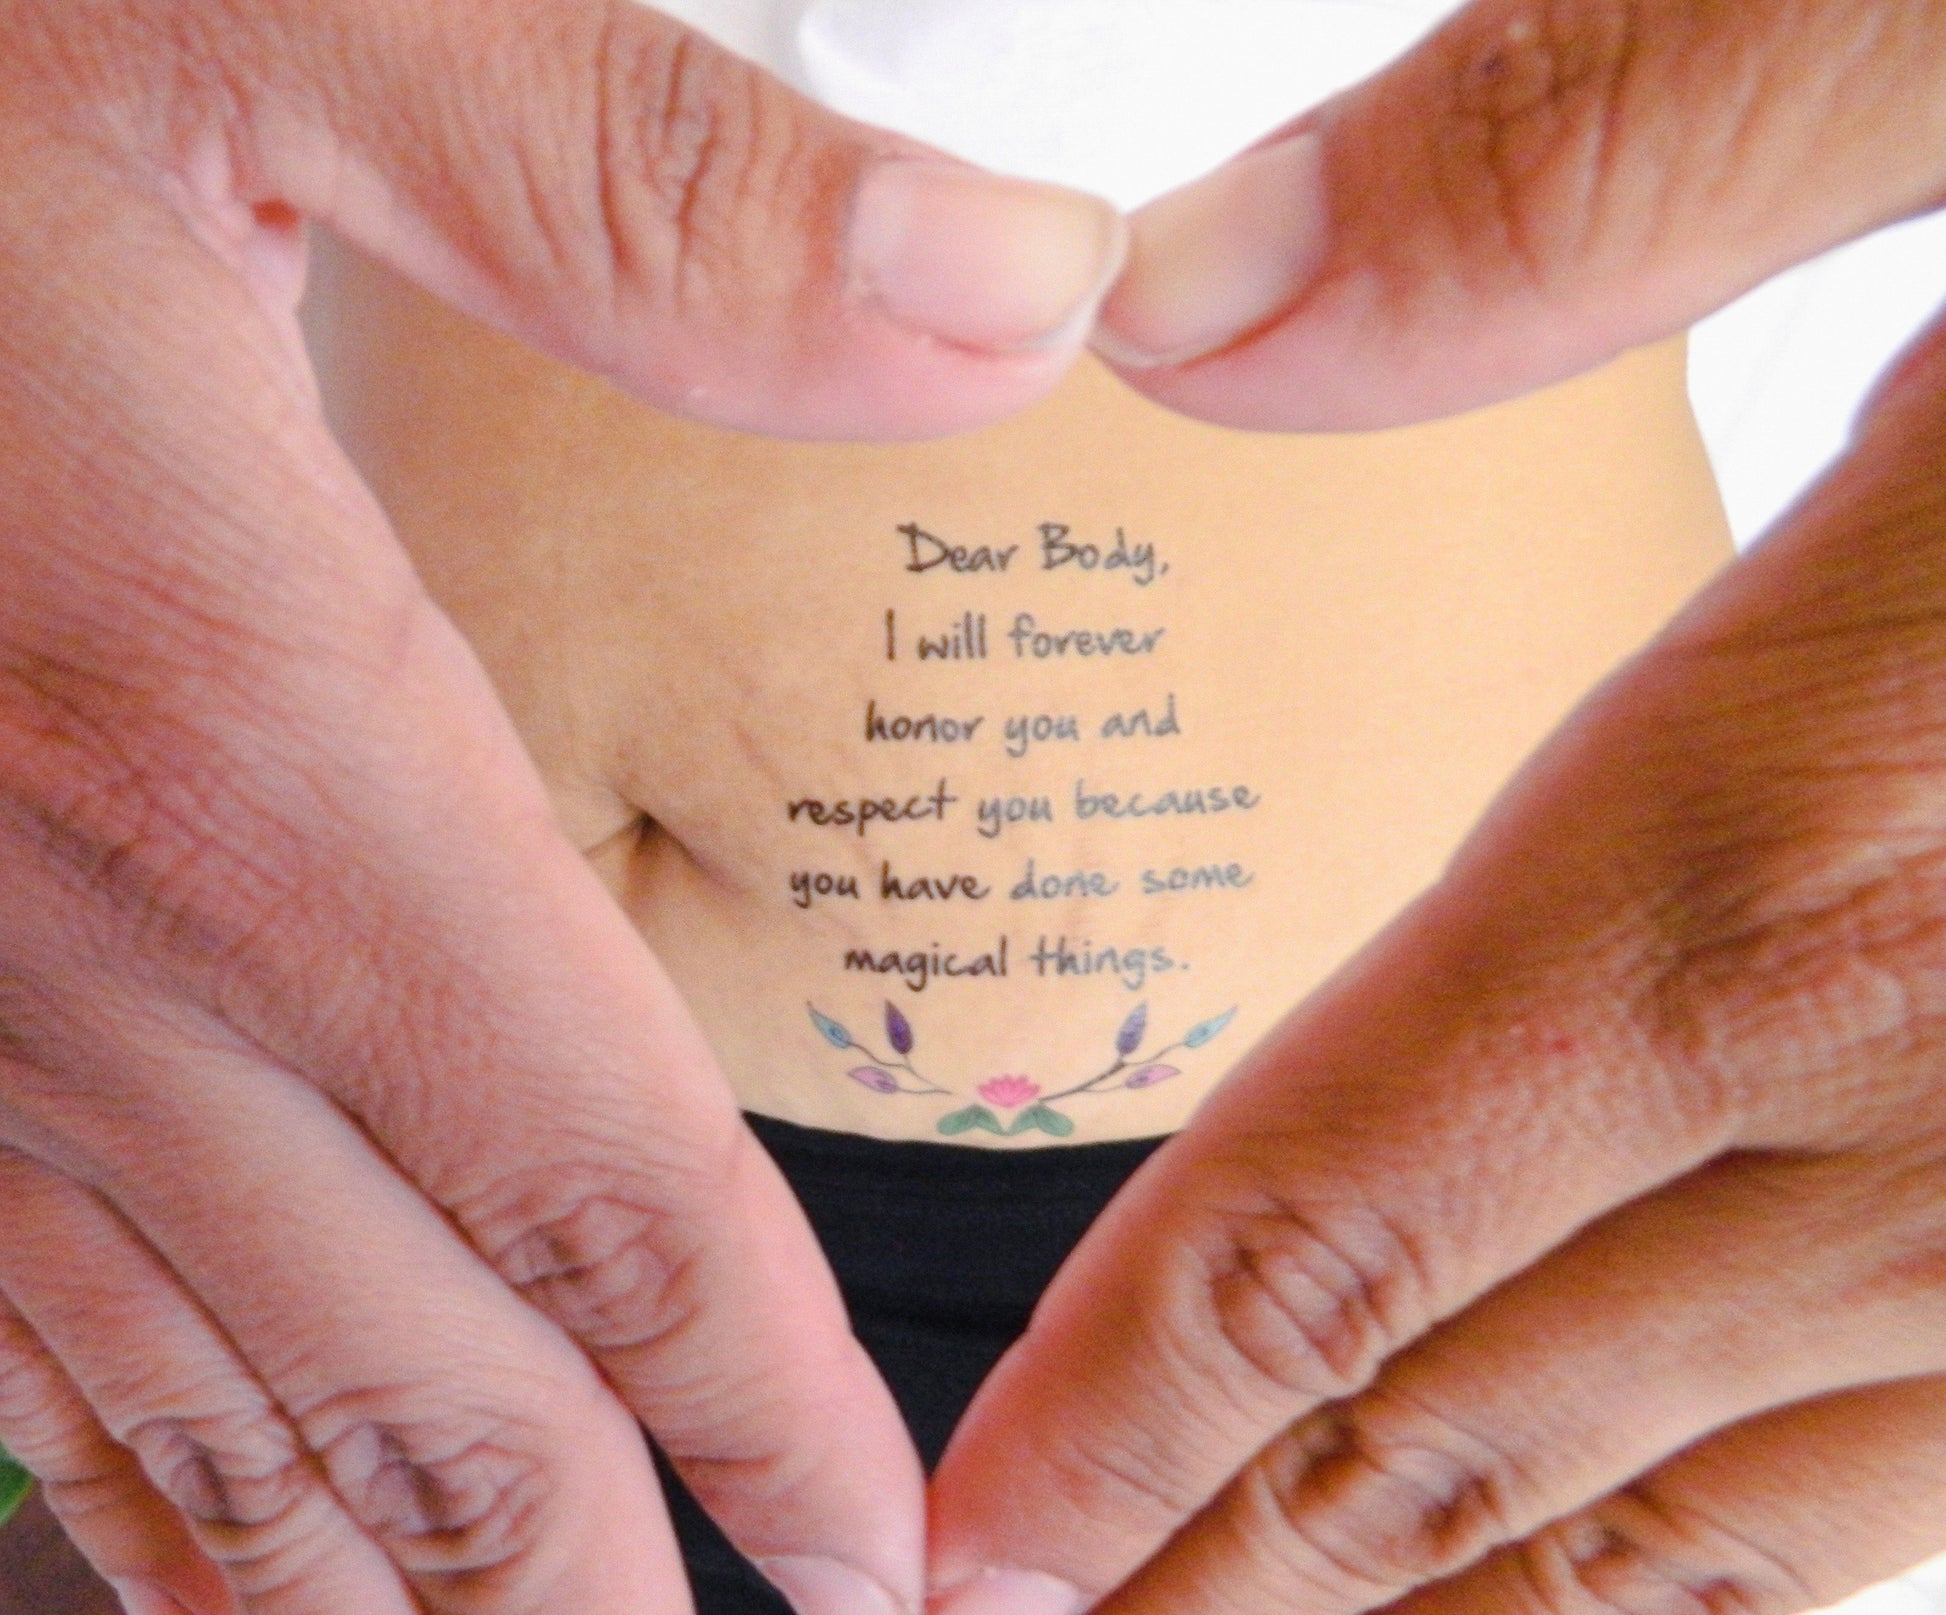 Dear Body,
I will forever
honor you and
respect you because
you have done some
magical things.